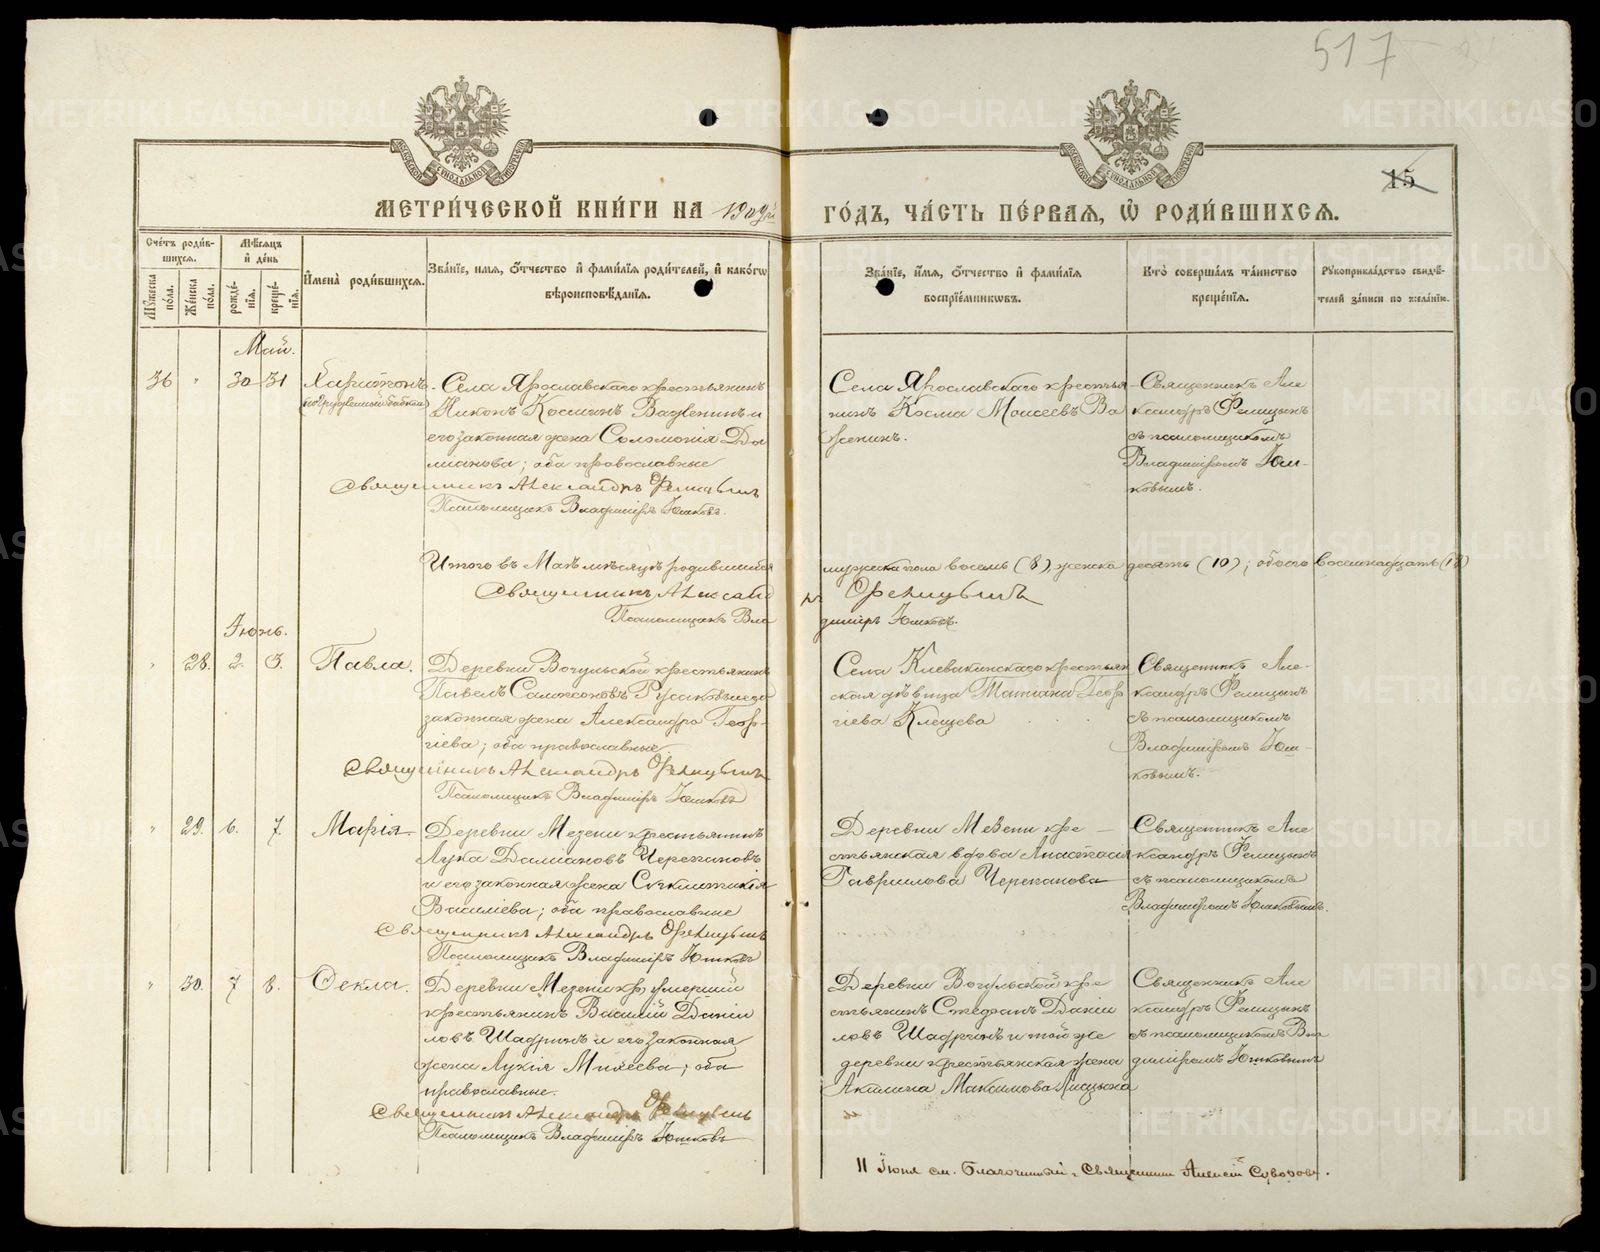 517
15
МОСКОВСКОЙ СѴНОДАЛЬНОЙ ТИПОГРАФІИ
МОСКОВСКОЙ СѴНОДАЛЬНОЙ ТИПОГРАФІИ
МЕТРИ́ЧЕСКОЙ КНИ́ГИ НА 1909й
ГО́ДЪ, ЧА́СТЬ ПЕ́РВАЯ, Ѡ҆ РОДИ́ВШИХСЯ.
Сче́тъ роди́в-
шихся.
Мꙋ́жеска по́ла.
Же́нска по́ла.
Мѣ́сяцъ
и҆ де́нь
рожде́-
нїѧ.
креще́-
нїѧ.
И҆мена̀ роди́вшихся.
Зва́нїе, и҆́мѧ, ѻ҆́тчество и҆ фами́лїѧ роди́телей, и҆ како́гѡ
вѣроисповѣ́данїѧ.
Зва́нїе, и҆́мѧ, ѻ҆́тчество и҆ фами́лїѧ
воспрїе́мникѡвъ.
Кто̀ соверша́лъ та́инство
креще́нїѧ.
Рꙋкоприкла́дство свидѣ́-
телей за́писи по жела́нїю.
Май.
36 " 30 31 Харитонъ
(погруженный бабкой)
Села Ярославскаго крестьянинъ
Никонъ Космичъ Важенинъ и
его законная жена Соломонія Да
міанова; оба православные
Священникъ Александръ Феницынъ
Псаломщикъ Владиміръ Юшковъ.
Села Ярославскаго крестья
нинъ Косма Моисеевъ Ва
женинъ.
Священникъ Але
ксандръ Феницынъ
съ псаломщикомъ
Владиміромъ Юш-
ковымъ.
Итого въ Маѣ мѣсяцѣ родившихся
мужска пола восемь (8), женска десять (10); обоего восемнадцать (18)
Священникъ Александ
ръ Феницынъ
Псаломщикъ Вла
диміръ Юшковъ.
Іюнь.
" 28. 2. 3. Павла.
Деревни Вогульской крестьянинъ
Павелъ Самсоновъ Русаковъ и его
законная жена Александра Геор-
гіева; оба православные
Священникъ Александръ Феницынъ
Псаломщикъ Владиміръ Юшковъ
Села Клевакинскаго крестьян
ская дѣвица Татіана Геор
гіева Клещева
Священникъ Але-
ксандръ Феницынъ
съ псаломщикомъ
Владиміромъ Юш-
ковымъ.
" 29. 6. 7. Марія.
Деревни Мезени крестьянинъ
Лука Даміановъ Черепановъ
и его законная жена Сѵнклитикія
Василіева; оба православные
Священникъ Александръ Феницынъ
Псаломщикъ Владиміръ Юшковъ
Деревни Мезени кре
стьянская вдова Анастасія
Гавриилова Черепанова
Священникъ Але
ксандръ Феницынъ
съ псаломщикомъ
Владиміромъ Юшковымъ.
" 30. 7 8. Ѳекла.
Деревни Мезени умершій
крестьянинъ Василій Даніи
ловъ Шадринъ и его законная
жена Лукія Михеева; оба
православные.
Священникъ Александръ Феницынъ
Псаломщикъ Владиміръ Юшковъ
Деревни Вогульской кре
стьянинъ Стефанъ Даніи
ловъ Шадринъ и той же
деревни крестьянская жена
Акилина Максимова
Священникъ Але
ксандръ Феницынъ
съ псаломщикомъ Вла
диміромъ Юшковымъ
11 Іюня см. Благочинный, Священникъ Алексій Суворовъ.
METRIKI.GASO-URAL.RU